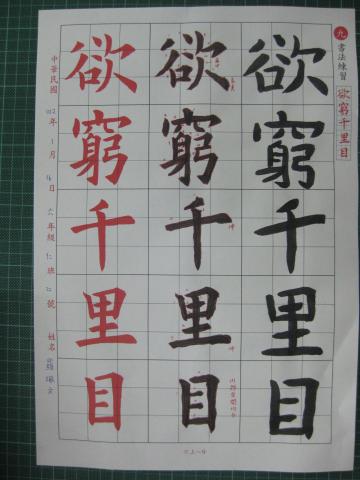 九 書法練習 欲窮千里目
欲窮千里目
欲窮千里目
欲窮千里目
中華民國 年 1 月 日 六年級 仁班 號 姓名